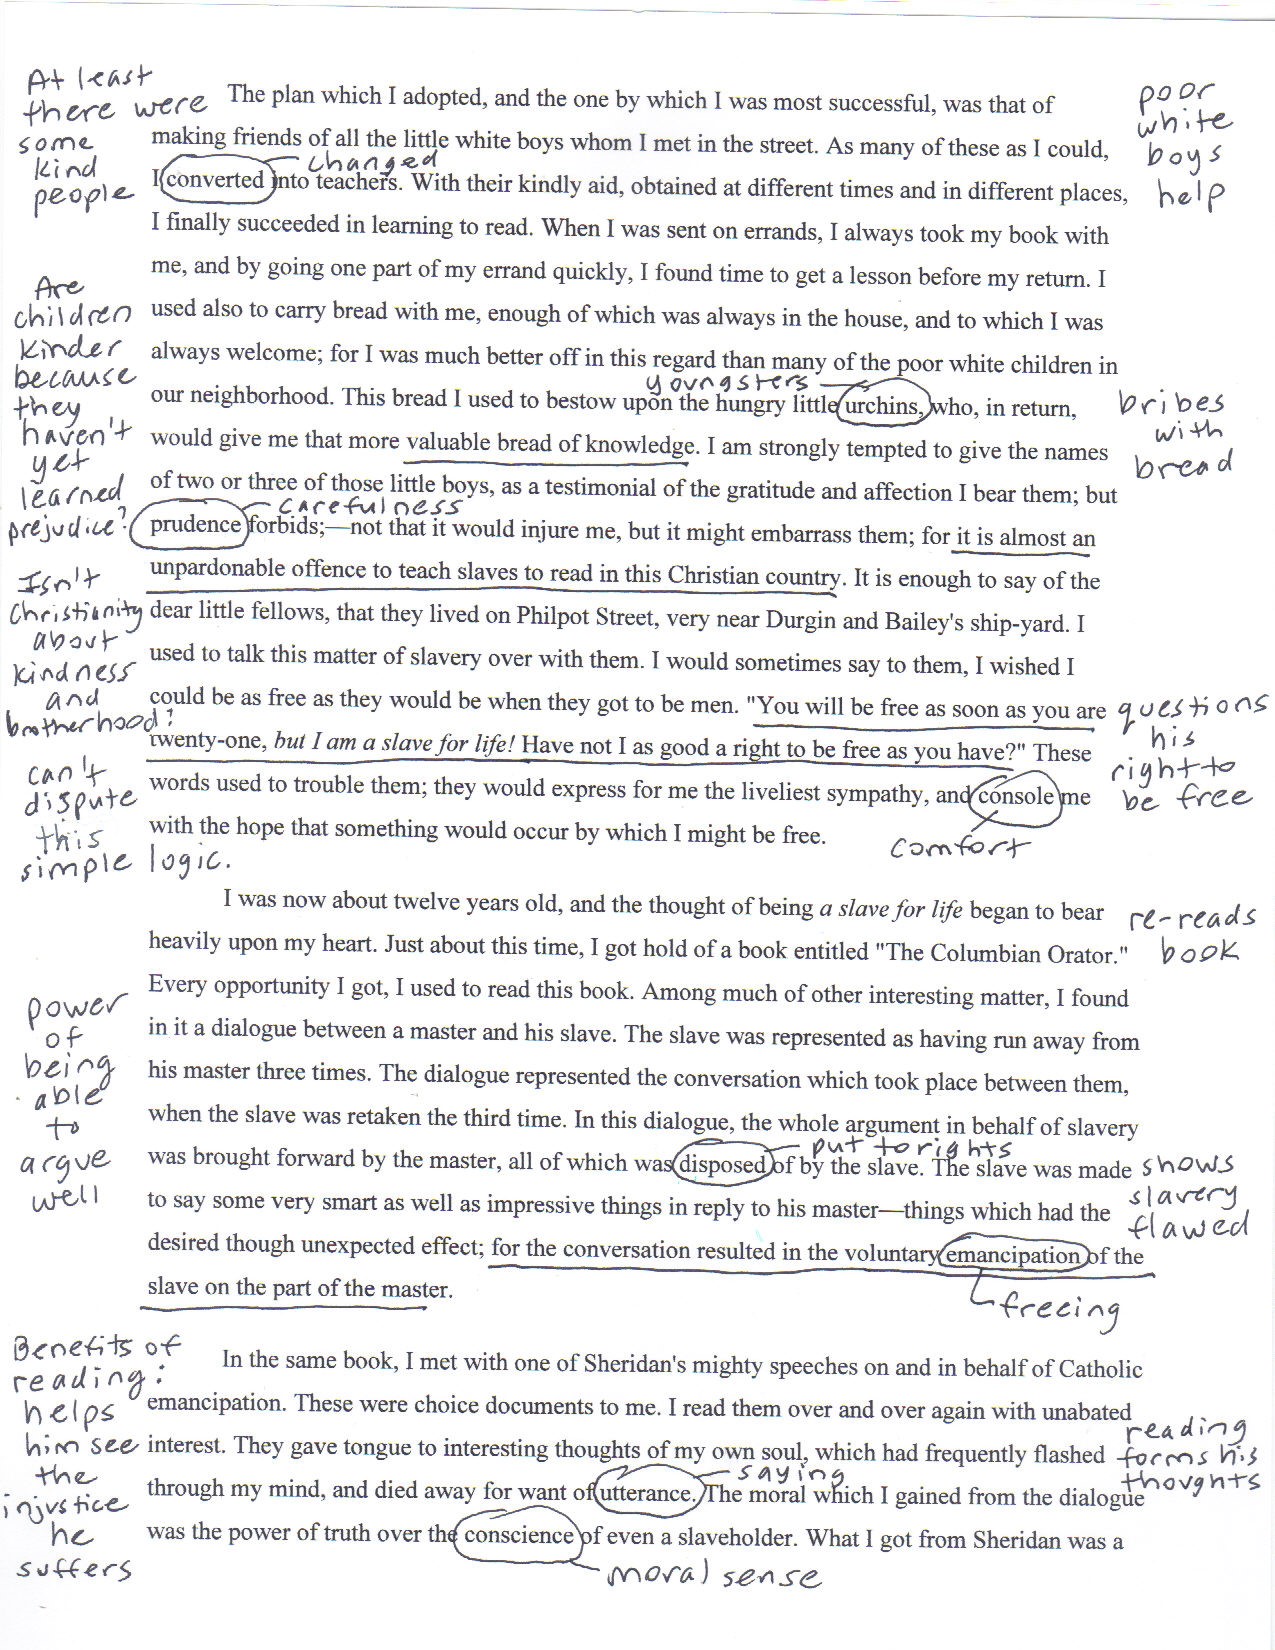 At least
there were
some
kind
people
The plan which I adopted, and the one by which I was most successful, was that of
making friends of all the little white boys whom I met in the street. As many of these as I could,
changed
I converted into teachers. With their kindly aid, obtained at different times and in different places,
I finally succeeded in learning to read. When I was sent on errands, I always took my book with
me, and by going one part of my errand quickly, I found time to get a lesson before my return. I
used also to carry bread with me, enough of which was always in the house, and to which I was
always welcome; for I was much better off in this regard than many of the poor white children in
youngsters
our neighborhood. This bread I used to bestow upon the hungry little urchins, who, in return,
would give me that more valuable bread of knowledge. I am strongly tempted to give the names
of two or three of those little boys, as a testimonial of the gratitude and affection I bear them; but
carefulness
prudence forbids;—not that it would injure me, but it might embarrass them; for it is almost an
unpardonable offence to teach slaves to read in this Christian country. It is enough to say of the
dear little fellows, that they lived on Philpot Street, very near Durgin and Bailey's ship-yard. I
used to talk this matter of slavery over with them. I would sometimes say to them, I wished I
could be as free as they would be when they got to be men. "You will be free as soon as you are
twenty-one, but I am a slave for life! Have not I as good a right to be free as you have?" These
words used to trouble them; they would express for me the liveliest sympathy, and console me
with the hope that something would occur by which I might be free.
comfort
poor
white
boys
help
Are
children
kinder
because
they
haven't
yet
learned
prejudice?
bribes
with
bread
Isn't
Christianity
about
kindness
and
brotherhood?
can't
dispute
this
simple logic.
questions
his
right to
be free
I was now about twelve years old, and the thought of being a slave for life began to bear
heavily upon my heart. Just about this time, I got hold of a book entitled "The Columbian Orator."
Every opportunity I got, I used to read this book. Among much of other interesting matter, I found
in it a dialogue between a master and his slave. The slave was represented as having run away from
his master three times. The dialogue represented the conversation which took place between them,
when the slave was retaken the third time. In this dialogue, the whole argument in behalf of slavery
put to rights
was brought forward by the master, all of which was disposed of by the slave. The slave was made
to say some very smart as well as impressive things in reply to his master—things which had the
desired though unexpected effect; for the conversation resulted in the voluntary emancipation of the
slave on the part of the master.
freeing
re-reads
book
power
of
being
able
to
argue
well
shows
slavery
flawed
Benefits of
reading:
helps
him see
the
injustice
he
suffers
In the same book, I met with one of Sheridan's mighty speeches on and in behalf of Catholic
emancipation. These were choice documents to me. I read them over and over again with unabated
interest. They gave tongue to interesting thoughts of my own soul, which had frequently flashed
saying
through my mind, and died away for want of utterance. The moral which I gained from the dialogue
was the power of truth over the conscience of even a slaveholder. What I got from Sheridan was a
moral sense
reading
forms his
thoughts